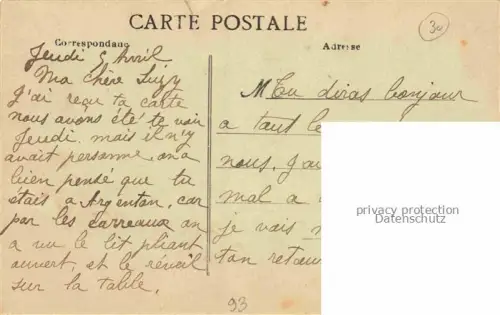 CARTE POSTALE
30
Correspondance
Adresse
Jeudi 5 Avril
Ma chère Suzy
J'ai reçu ta carte
nous avons été te voir
Jeudi. mais il n'y
avait personne, on a
bien pensé que tu
étais a Argentan, car
par les carreaux on
a vu le lit pliant
ouvert, et le réveil
sur la table.
Tu diras bonjour
a tout le
nous. J'ai
mal a
je vais
ton retour
privacy protection
Datenschutz
93